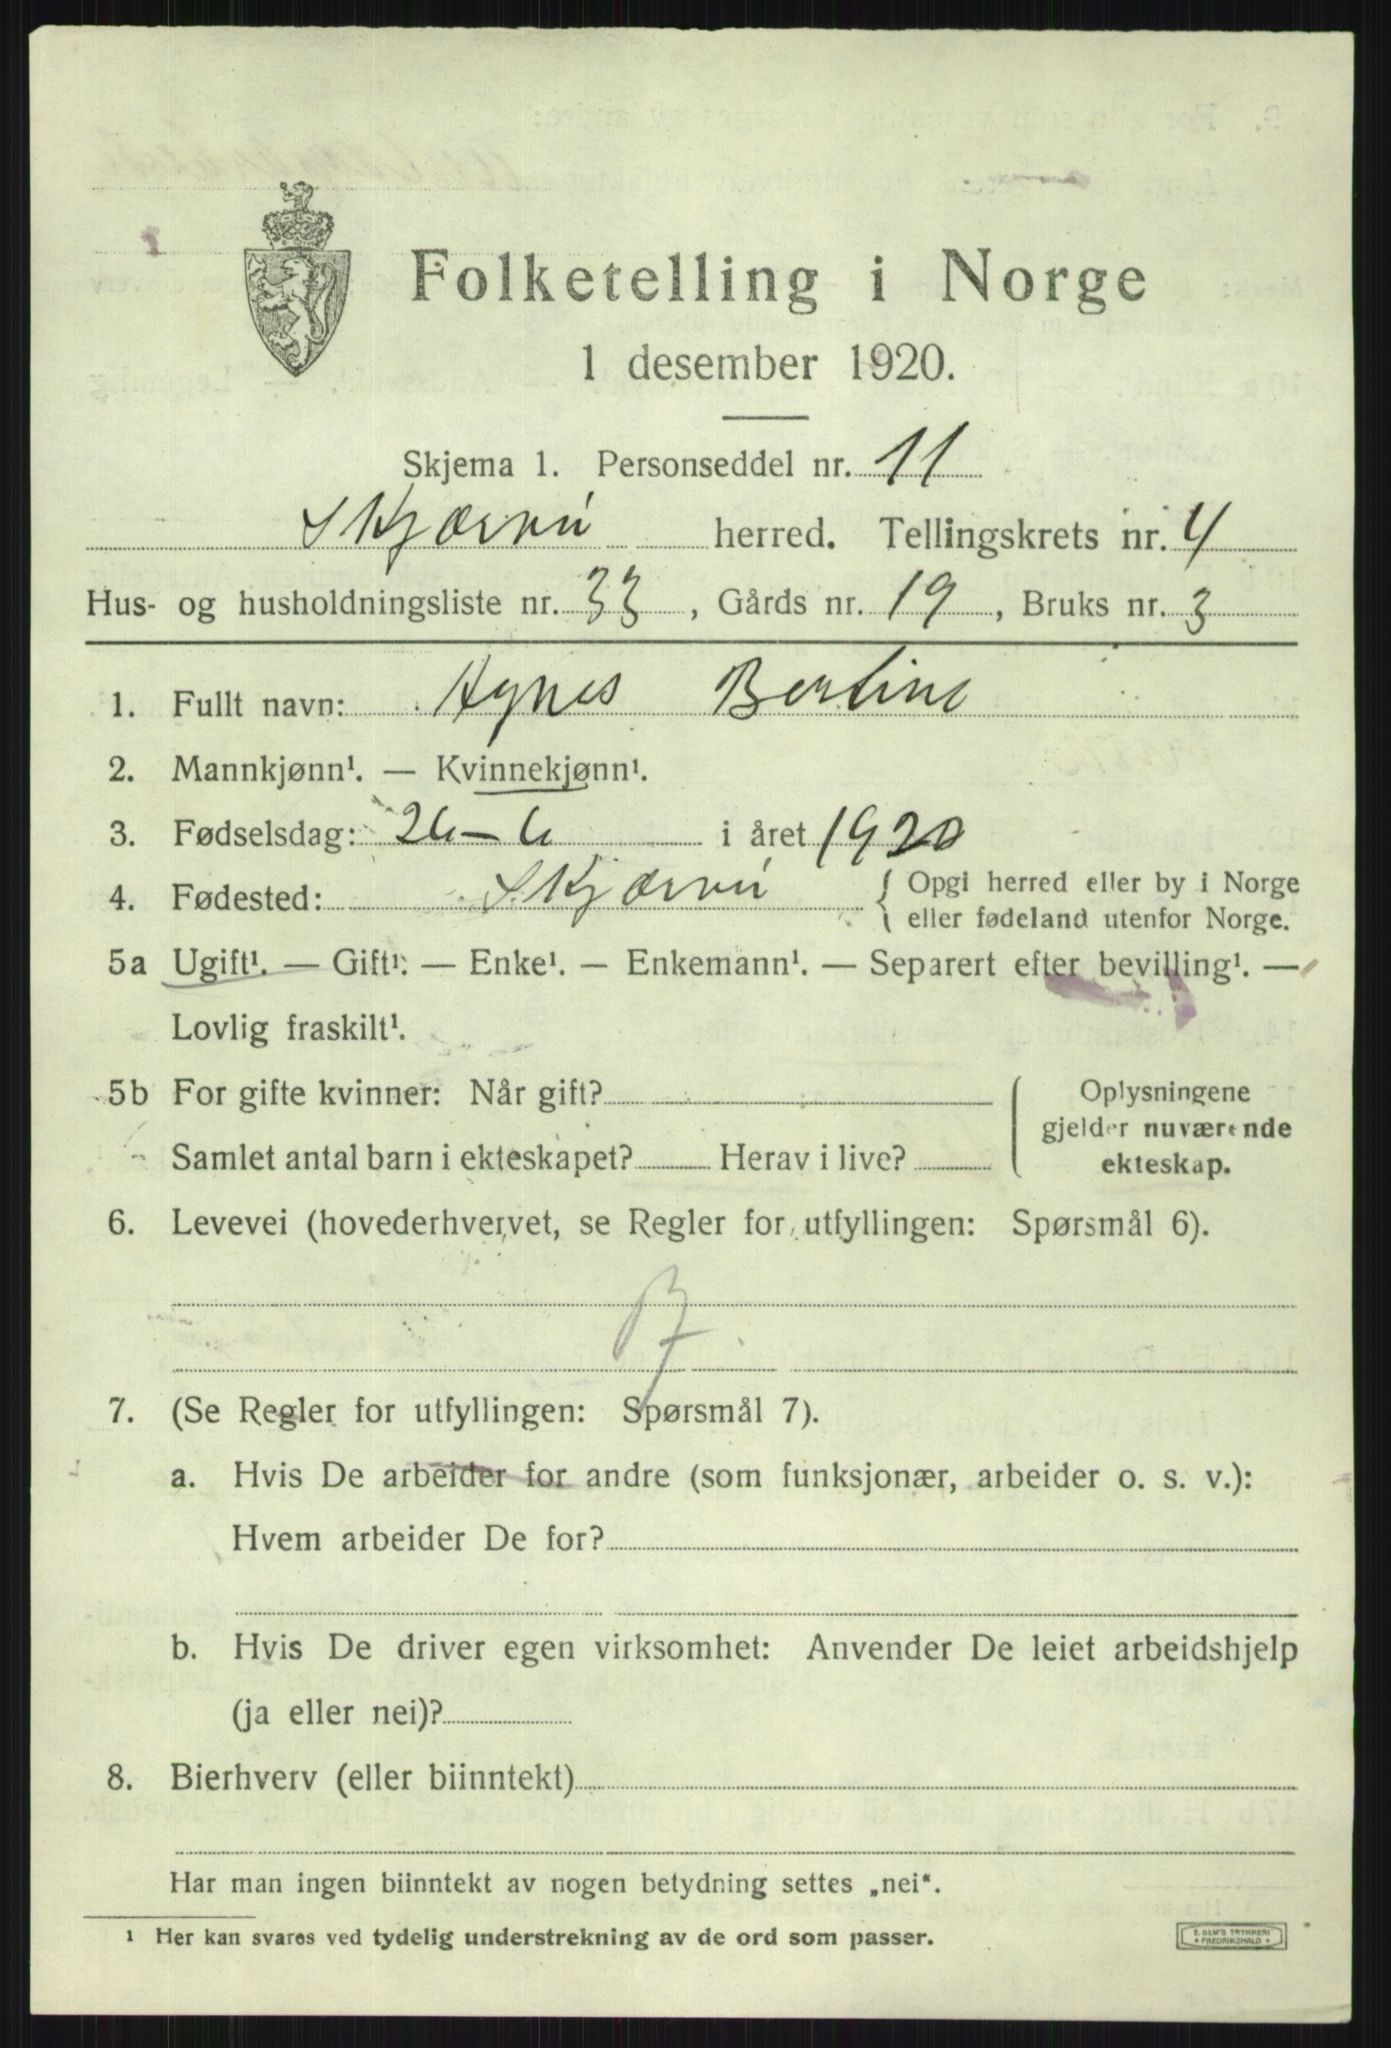 Folketelling i Norge
1 desember 1920.
Skjema 1. Personseddel nr. 11
Skjærvø herred. Tellingskrets nr. 4
Hus- og husholdningsliste nr. 33, Gårds nr. 19, Bruks nr. 3
1. Fullt navn: Agnes Berline
2. Mannkjønn¹. — Kvinnekjønn¹.
3. Fødselsdag: 26-6 i året 1920
4. Fødested: Skjærvø { Opgi herred eller by i Norge
eller fødeland utenfor Norge.
5a Ugift¹. — Gift¹. — Enke¹. — Enkemann¹. — Separert efter bevilling¹. —
Lovlig fraskilt¹.
5b For gifte kvinner: Når gift?
Samlet antal barn i ekteskapet? Herav i live?
Oplysningene
gjelder nuværende
ekteskap.
6. Levevei (hovederhvervet, se Regler for utfyllingen: Spørsmål 6).
B
7. (Se Regler for utfyllingen: Spørsmål 7).
a. Hvis De arbeider for andre (som funksjonær, arbeider o. s. v.):
Hvem arbeider De for?
b. Hvis De driver egen virksomhet: Anvender De leiet arbeidshjelp
(ja eller nei)?
8. Bierhverv (eller biinntekt)
Har man ingen biinntekt av nogen betydning settes „nei“.
¹ Her kan svares ved tydelig understrekning av de ord som passer.
E. SEM'S TRYKKERI
FREDRIKSHALD